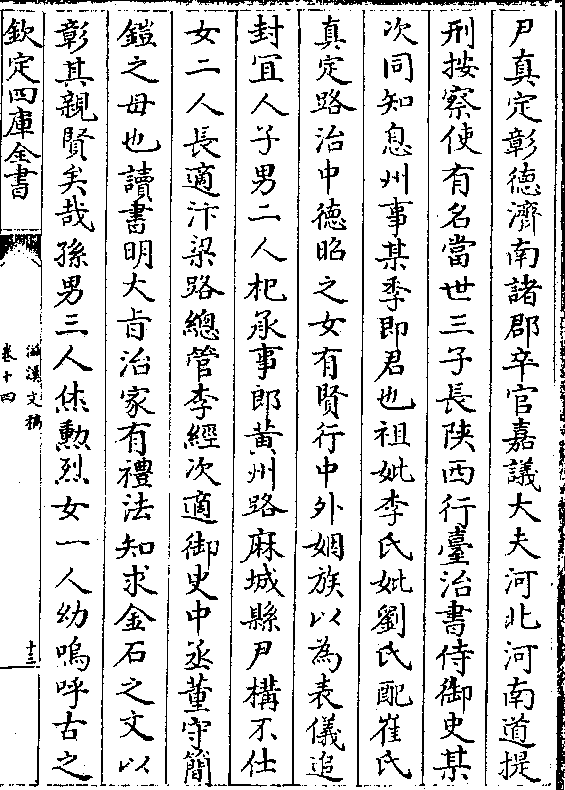 尹真定彰德濟南諸郡卒官嘉議大夫河北河南道提
刑按察使有名當世三子長陝西行臺治書侍御史某
次同知息州事某季即君也祖妣李氏妣劉氏配崔氏
真定路治中德昭之女有賢行中外姻族以為表儀追
封宜人子男二人杞承事郎黃州路麻城縣尹構不仕
女二人長適汴梁路總管李經次適御史中丞董守簡
鎧之母也讀書明大㫖治家有禮法知求金石之文以
彰其親賢矣哉孫男三人烋勲烈女一人幼嗚呼古之
欽定四庫全書
滋溪文稿
卷十四
十三